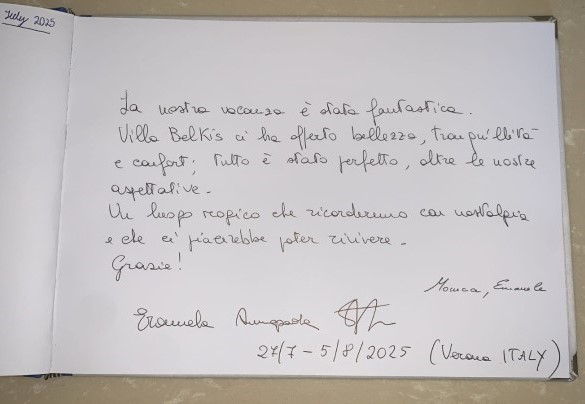 July 2025
La nostra vacanza è stata fantastica.
Villa Belkis ci ha offerto bellezza, tranquillità
e confort; tutto è stato perfetto, oltre le nostre
aspettative.
Un luogo magico che ricorderemo con nostalgia
e che ci piacerebbe poter rivivere.
Grazie!
Monica, Emanuele
Emanuela Annapaola
27/7 - 5/8/2025 (Verona ITALY)